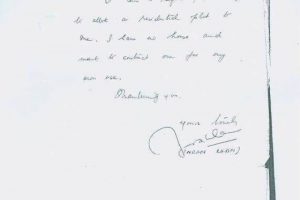 to allot a residential plot to
me. I have no house and
want to construct one for my
own use.
Thanking you.
yours
(IMRAN KHAN)